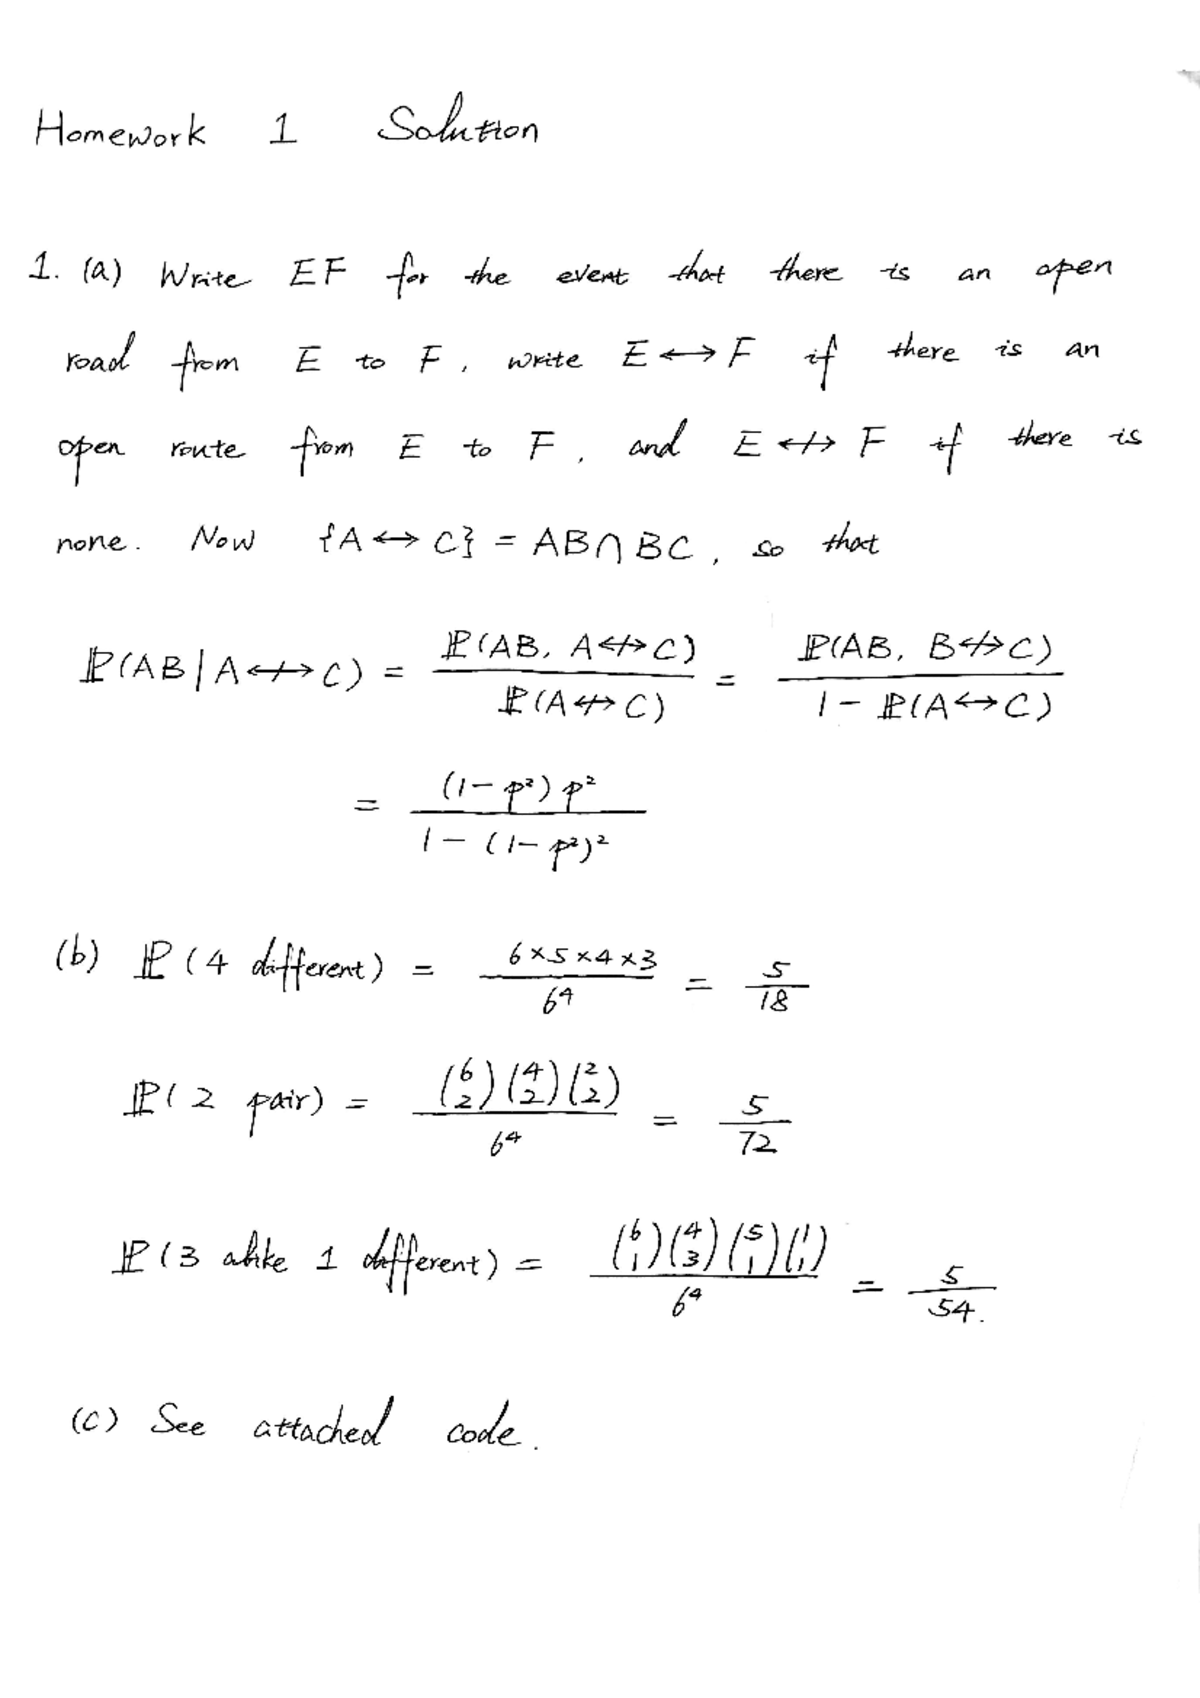 Homework 1 Solution
1. (a) Write EF for the event that there is an open
road from E to F, write E ↔ F if there is an
open route from E to F, and E ↮ F if there is
none. Now {A ↔ C} = AB ∩ BC, so that
ℙ(AB | A ↮ C) = ℙ(AB, A ↮ C) / ℙ(A ↮ C) = ℙ(AB, B ↮ C) / (1 − ℙ(A ↔ C))
= (1 − p²) p² / (1 − (1 − p²)²)
(b) ℙ(4 different) = (6×5×4×3) / 6⁴ = 5/18
ℙ(2 pair) = (6 2)(4 2)(2 2) / 6⁴ = 5/72
ℙ(3 alike 1 different) = (6 1)(4 3)(5 1)(1 1) / 6⁴ = 5/54.
(c) See attached code.